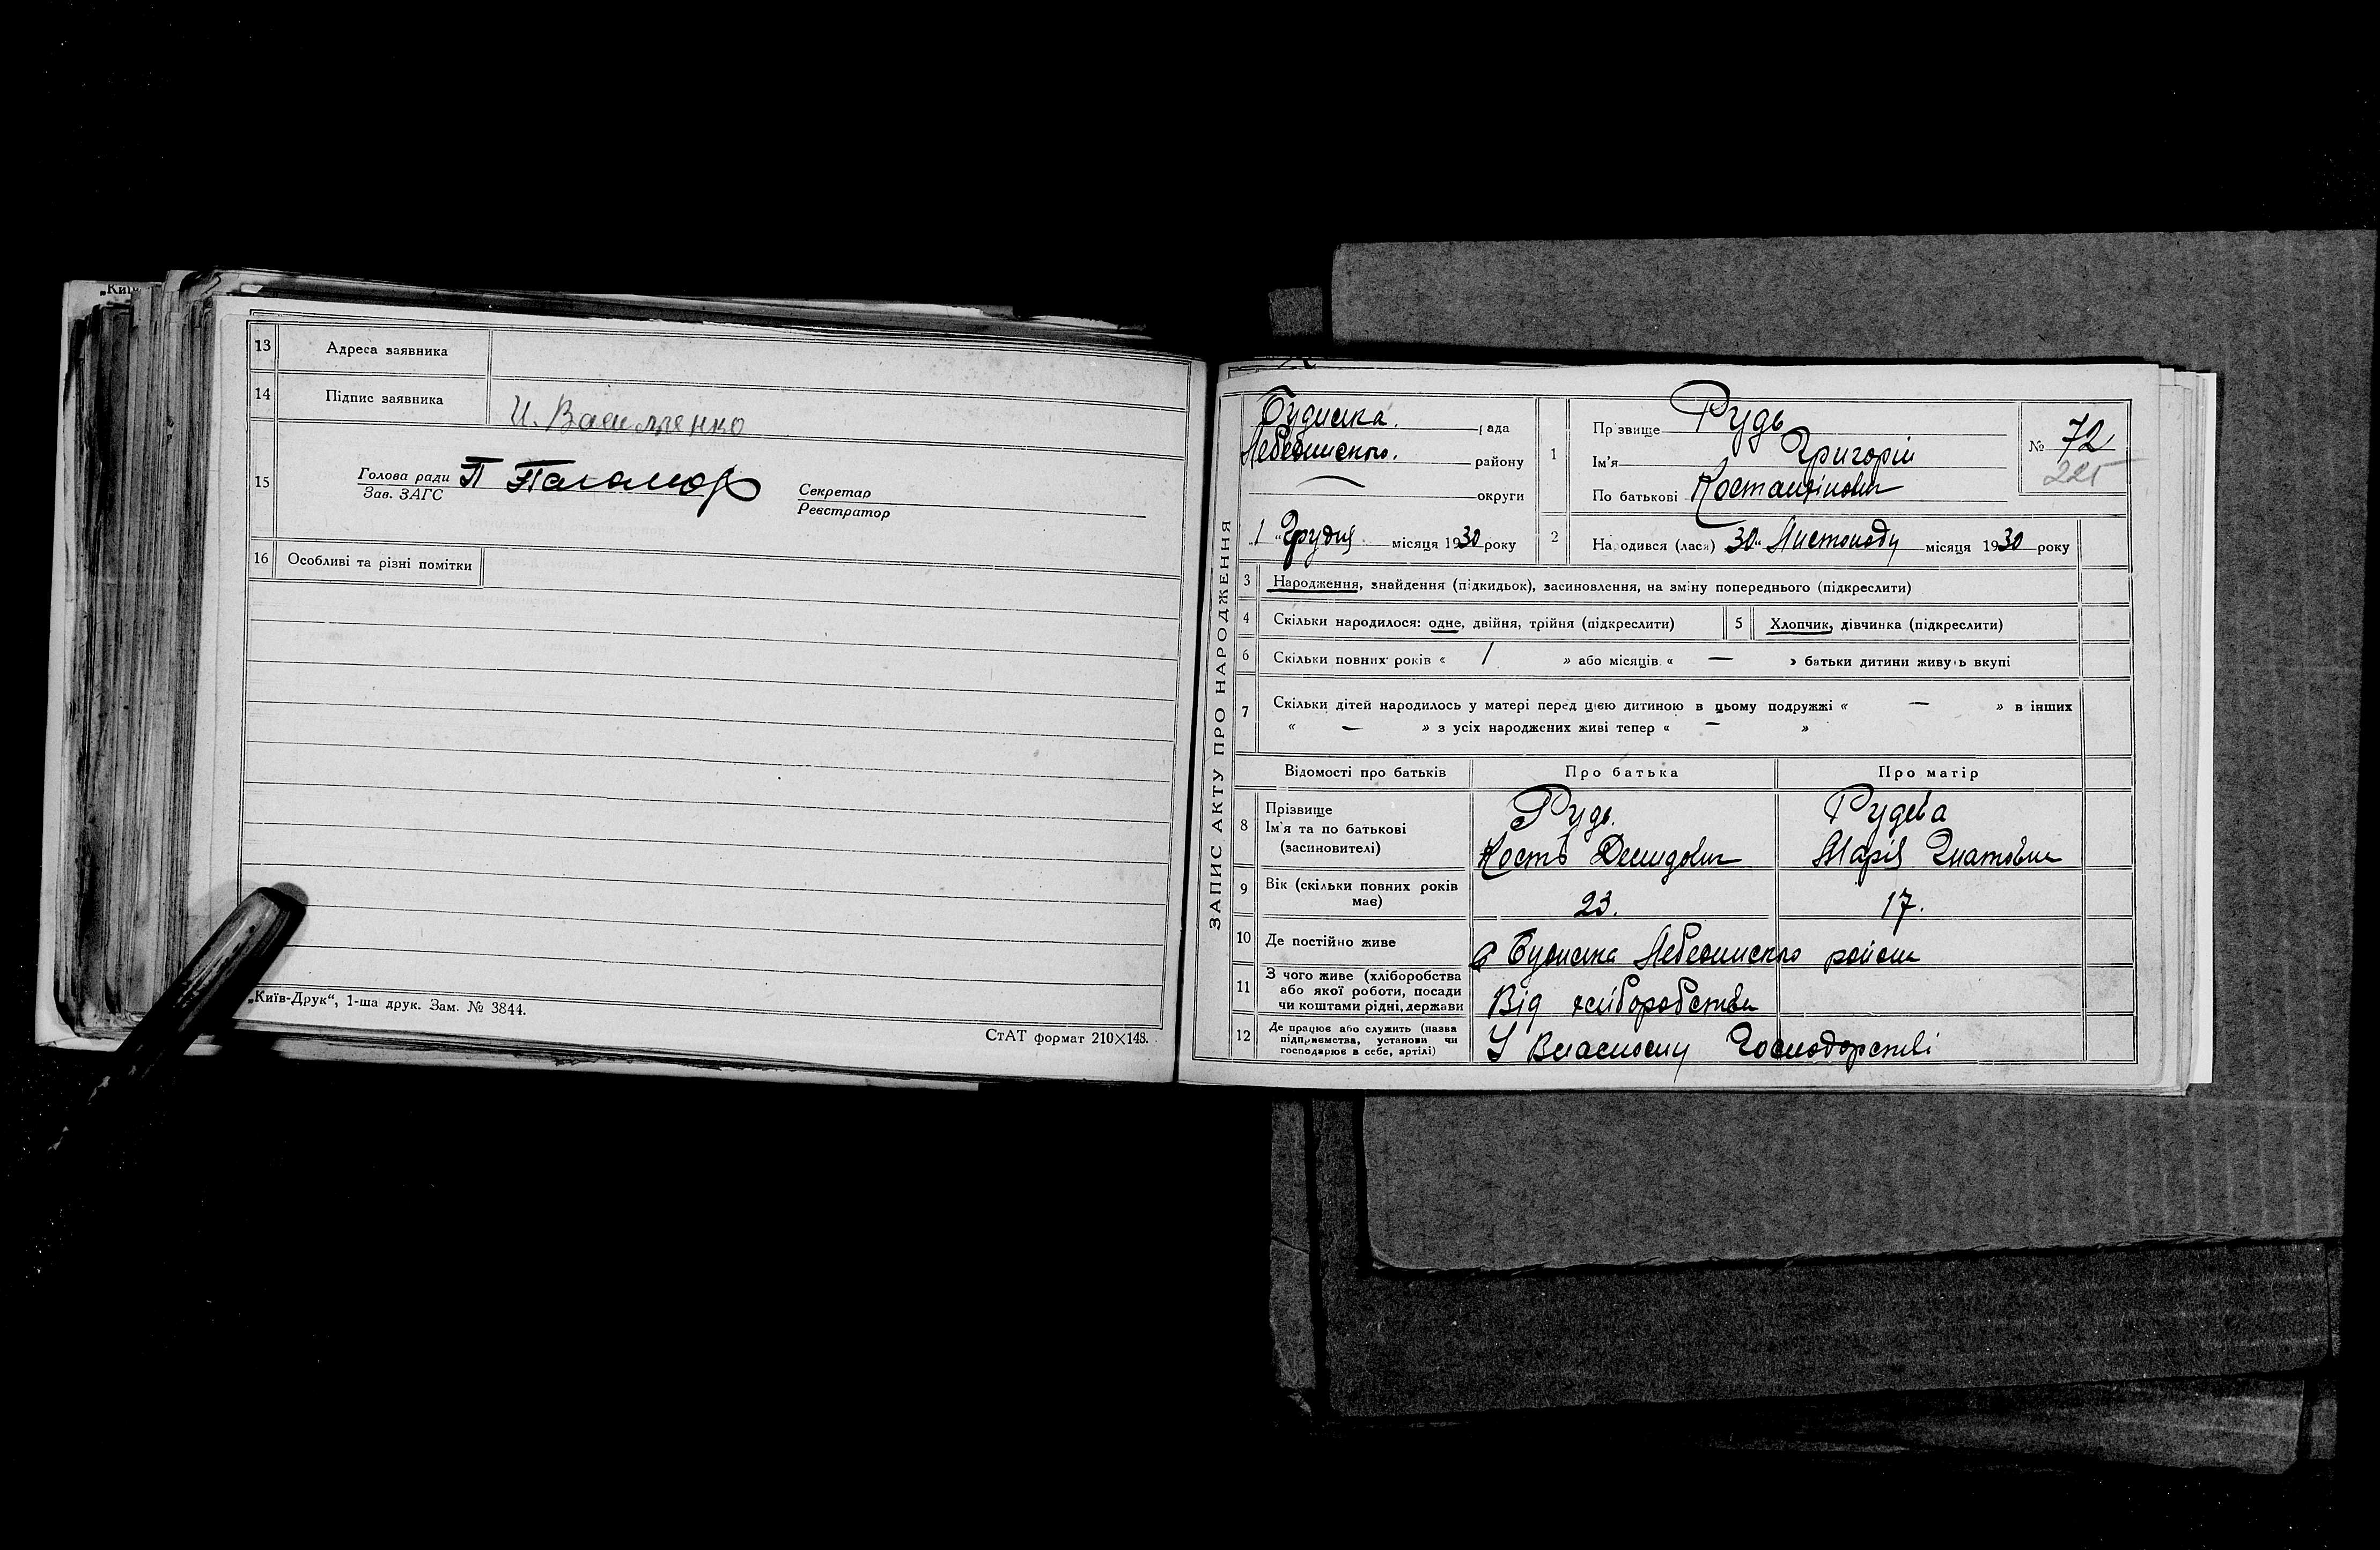 „Київ
13 Адреса заявника
14 Підпис заявника И. Василенко
15 Голова ради П Паламар Секретар
Зав. ЗАГС Реєстратор
16 Особливі та різні помітки
„Київ-Друк“, 1-ша друк. Зам. № 3844.
СтАТ формат 210×148.
ЗАПИС АКТУ ПРО НАРОДЖЕННЯ
Будиська. рада
Лебединского. району
округи
„1 “ Грудня місяця 1930 року
1 Прізвище Рудь
Ім'я Григорій
По батькові Костантінович
№ 72
225
2 Народився (лася) 30 “ Листопаду місяця 1930 року
3 Народження, знайдення (підкидьок), засиновлення, на зміну попереднього (підкреслити)
4 Скільки народилося: одне, двійня, трійня (підкреслити) 5 Хлопчик, дівчинка (підкреслити)
6 Скільки повних років « 1 » або місяців « — » батьки дитини живуть вкупі
7 Скільки дітей народилось у матері перед цією дитиною в цьому подружжі « — » в інших
« — » з усіх народжених живі тепер « — »
Відомості про батьків Про батька Про матір
8 Прізвище Рудь. Рудева
Ім'я та по батькові
(засиновителі) Кость Демидович Марія Гнатовна
9 Вік (скільки повних років
має) 23. 17.
10 Де постійно живе с Будиська Лебединского району
11 З чого живе (хліборобства
або якої роботи, посади
чи коштами рідні, держави Від хліборобства
12 Де працює або служить (назва
підприємства, установи чи
господарює в себе, артілі) У Власному Господарстві